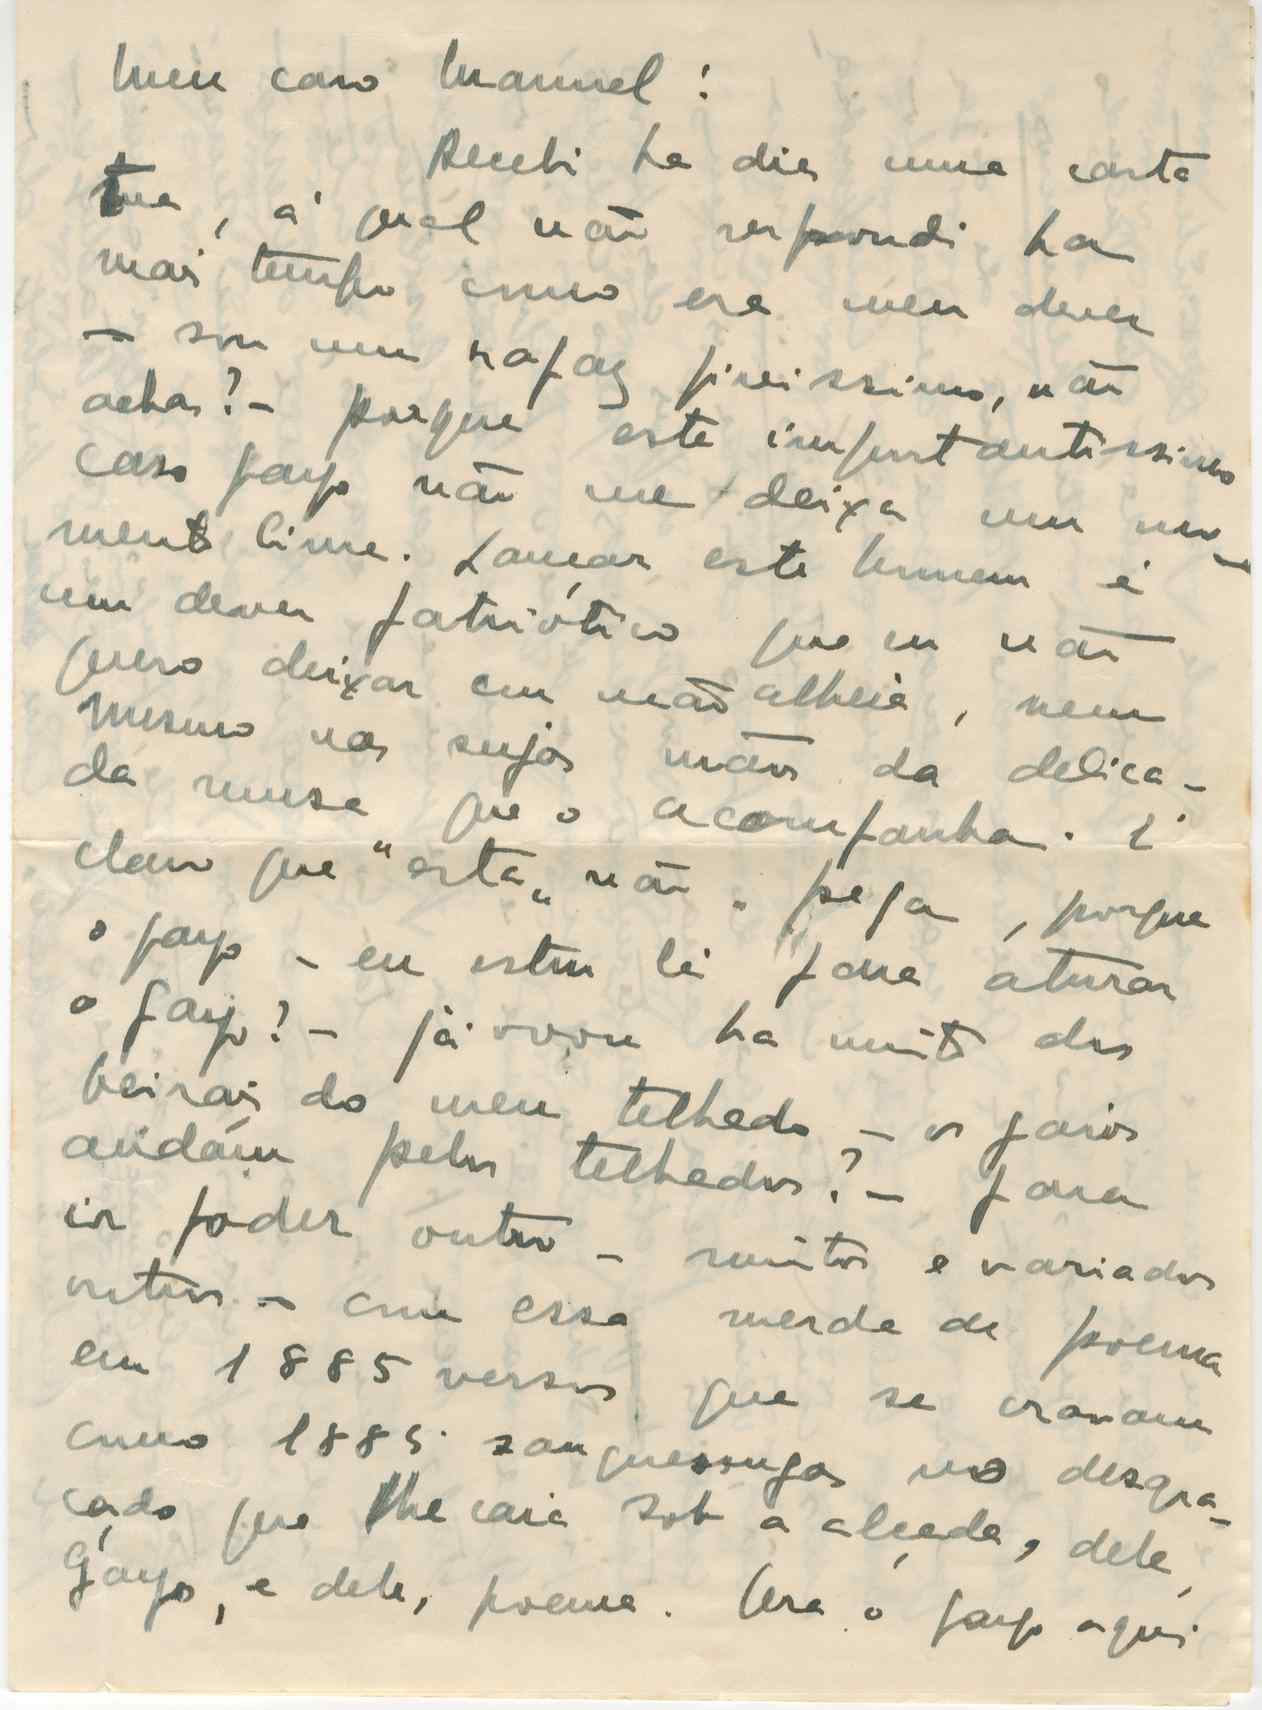 Meu caro Manuel:
Recebi ha dias uma carta
tua, á qual não respondi ha
mais tempo como era meu dever
— sou um rapaz fixissimo, não
achas? — porque este importantissimo
caso gayo não me deixa um mo-
mento livre. Lançar este homem é
um dever patriótico que eu não
quero deixar em mãos alheias, nem
mesmo nas sujas mãos da delica-
da musa que o acompanha. É
claro que "esta" não pega, porque
o gayo — eu estou lá para aturar
o gayo? — já voou ha muito dos
beirais do meu telhado — os gaios
andám pelos telhados? — para
ir foder outro — muitos e variados
outros — com essa merda de poema
em 1885 versos que se cravam
como 1885 sanguesugas no desgra-
çado que lhe caia sob a alçada, dele,
Gayo, e dele, poema. Ora o gayo aqui